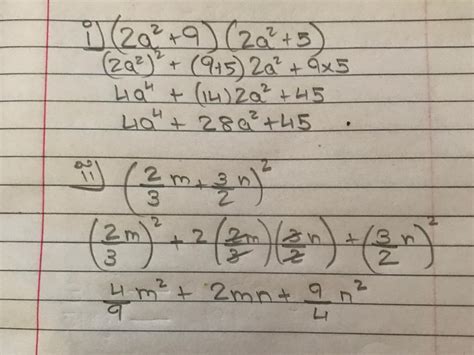 i) (2a² + 9) (2a² + 5)
(2a²)² + (9+5) 2a² + 9×5
4a⁴ + (14) 2a² + 45
4a⁴ + 28a² + 45 .
ii) (2/3 m + 3/2 n)²
(2/3 m)² + 2 (2m/3) (3/2 n) + (3/2 n)²
4/9 m² + 2mn + 9/4 n²